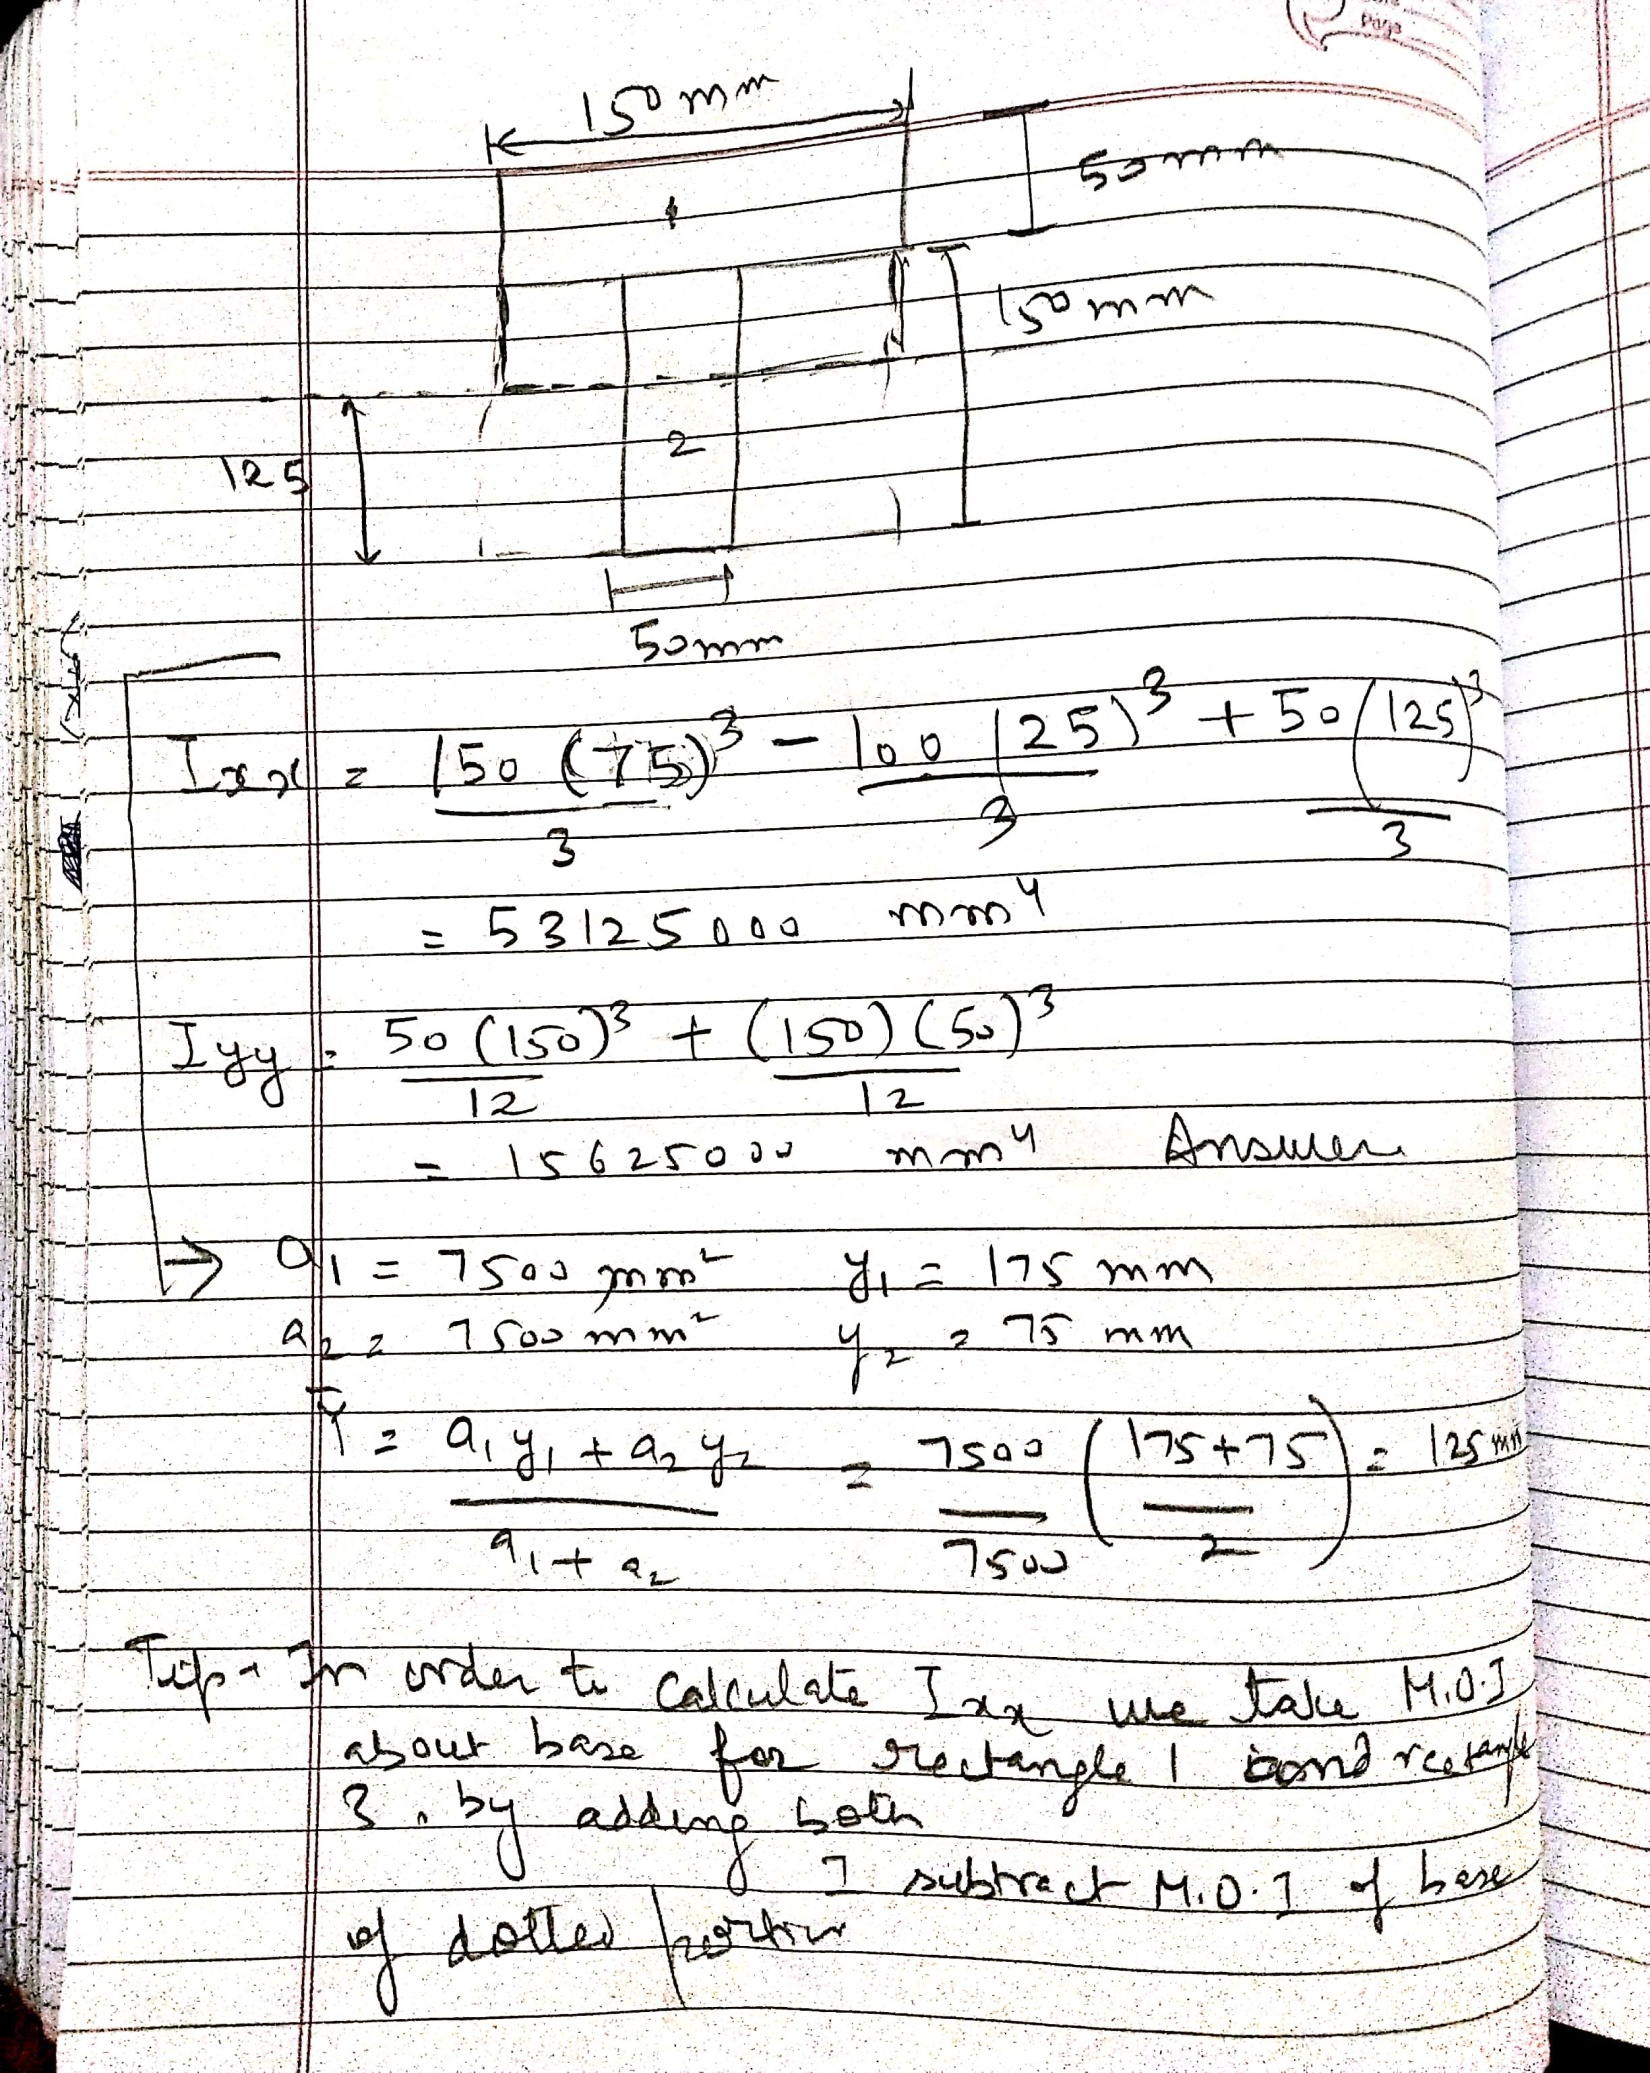 Page
150 mm
50 mm
1
150 mm
2
125
50mm
Ixx = 150 (75)³/3 - 100 (25)³/3 + 50 (125)³/3
= 53125000 mm⁴
Iyy = 50 (150)³/12 + (150) (50)³/12
= 15625000 mm⁴ Answer
→ a₁ = 7500 mm² y₁ = 175 mm
a₂ = 7500 mm² y₂ = 75 mm
Ȳ = (a₁y₁ + a₂y₂)/(a₁ + a₂) = 7500/7500 ((175+75)/2) = 125 mm
Tip - In order to calculate Ixx we take M.O.I
about base for rectangle 1 and rectangle
3. by adding both
I subtract M.O.I of base
of dotted portion